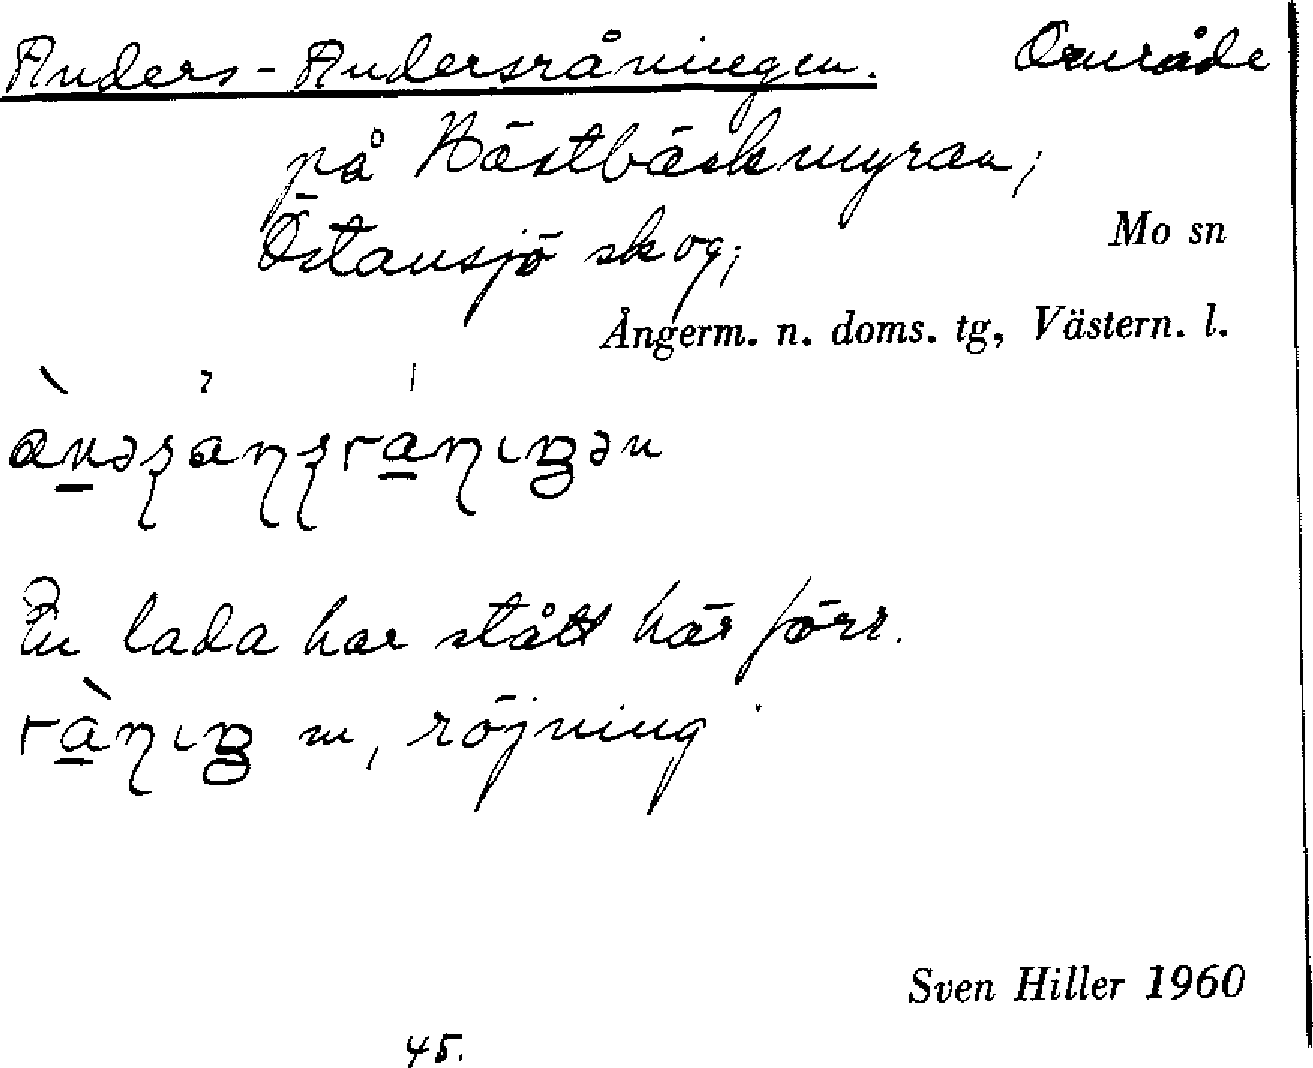 Anders-Andersråningen. Område
på Västbäckmyran,
Östansjö skog,
Mo sn
Ångerm. n. doms. tg, Västern. l.
En lada har stått här förr.
m, röjning
Sven Hiller 1960
45.